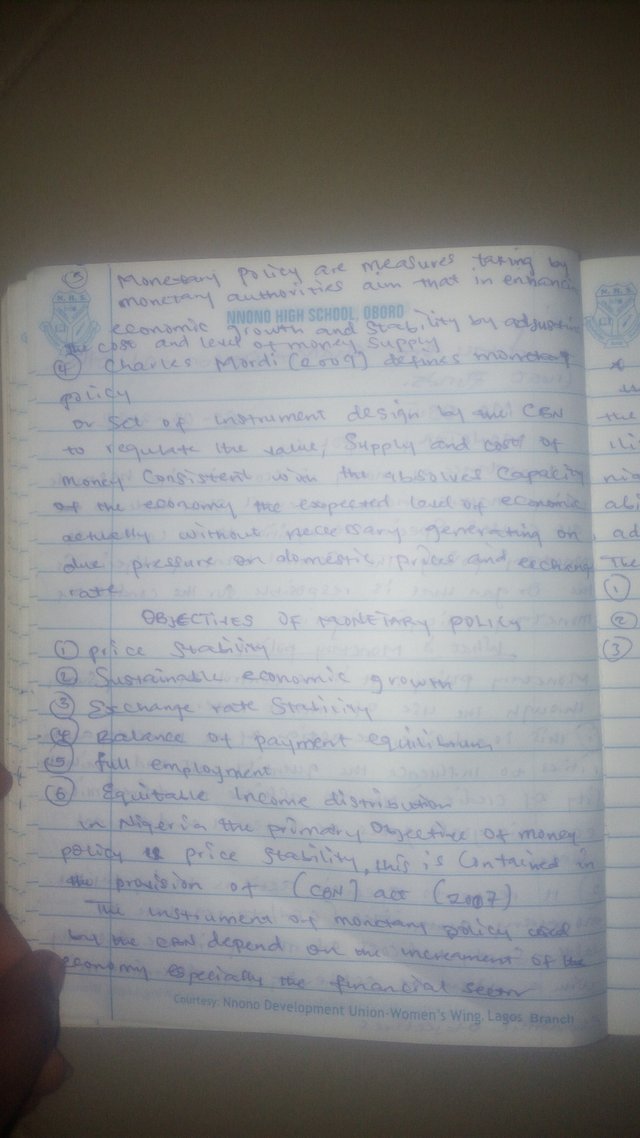 ③ Monetary policy are measures taking by
monetary authorities aim that in enhancing
NNONO HIGH SCHOOL, OBORO
economic growth and stability by adjusting
the cost and level of money supply
④ Charles Mordi (2009) defines monetary
policy
or set of instrument design by the CBN
to regulate the value, supply and cost of
money consistent with the absolves capacity
of the economy the expected level of economic
actually without necessary generating on
due pressure on domestic prices and exchange
rate
OBJECTIVES OF MONETARY POLICY
① price stability
② Sustainable economic growth
③ Exchange rate stability
④ Balance of payment equilibrium
⑤ full employment
⑥ Equitable Income distribution
in Nigeria the primary objective of money
policy is price stability, this is contained in
the provision of (CBN) act (2007)
The instrument of monetary policy used
by the CBN depend on the increament of the
economy especially the financial sector
Courtesy: Nnono Development Union-Women's Wing, Lagos Branch
the
ad
The
①
②
③